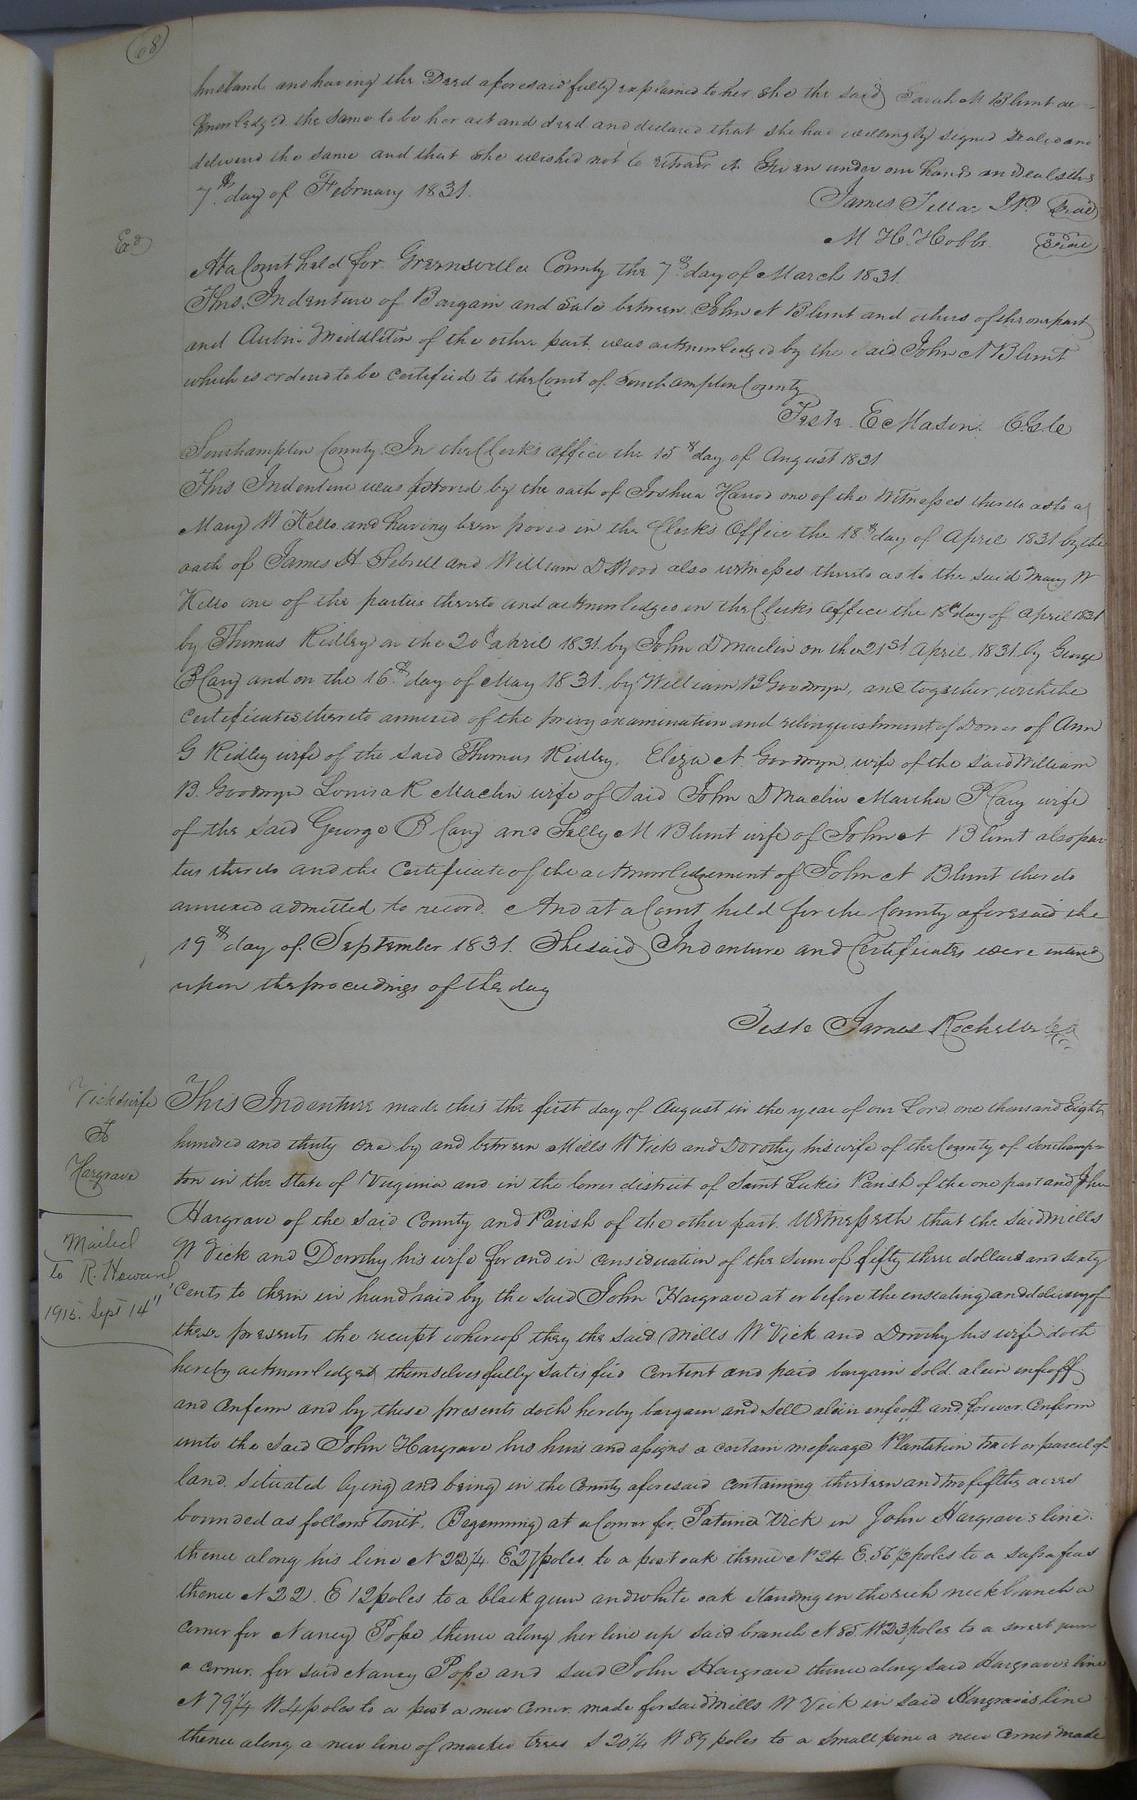 68
husband and having the Deed aforesaid fully explained to her she the said Sarah M Blunt ac-
knowledged the same to be her act and deed and declared that she had willingly signed sealed and
delivered the same and that she wished not to retract it. Given under our hands and seals this
7th day of February 1831.
James J.P. Seal
M H. Hobbs Seal
Exd
At a Court held for Greensville County the 7th day of March 1831.
This Indenture of Bargain and Sale between John N Blunt and others of the one part
and Middleton of the other part was acknowledged by the said John N Blunt
which is ordered to be certified to the Court of Southampton County
Teste E Mason.
Southampton County. In the Clerk's office the 15th day of August 1831
This Indenture was proved by the oath of Joshua one of the witnesses thereto as to
Mary W Kello and having been proved in the Clerks Office the 18th day of April 1831 by the
oath of James H Sebrell and William D Wood also witnesses thereto as to the said Mary W
Kello one of the parties thereto and acknowledged in the Clerks office the 18th day of April 1831
by Thomas Ridley on the 20th April 1831. by John D Maclin on the 21st April 1831 by George
B Cary and on the 16th day of May 1831. by William B Goodwyn, and together with the
certificates thereto annexed of the privy examination and relinquishment of Dower of Ann
G Ridley wife of the said Thomas Ridley. Eliza A Goodwyn wife of the said William
B. Goodwyn Louisa R Maclin wife of said John D Maclin Martha P Cary wife
of the said George B Cary and Sally M Blunt wife of John N Blunt also par
ties thereto and the Certificate of the acknowledgement of John N Blunt thereto
annexed admitted to record. And at a Court held for the County aforesaid the
19th day of September 1831. The said Indenture and Certificates were entered
upon the proceedings of the day
Teste James Rochelle
Vick & wife
To
Hargrave
Mailed
to R. Howard
1915. Sept 14"
This Indenture made this the first day of August in the year of our Lord one thousand Eight
hundred and thirty one by and between Mills W Vick and Dorothy his wife of the County of Southamp=
ton in the State of Virginia and in the lower district of Saint Lukes Parish of the one part and John
Hargrave of the said County and Parish of the other part. Witnesseth that the said Mills
W Vick and Dorothy his wife for and in consideration of the Sum of fifty three dollars and sixty
cents to them in hand paid by the said John Hargrave at or before the ensealing and delivery of
these presents the receipt whereof they the said Mills W Vick and Dorothy his wife doth
hereby acknowledged themselves fully satisfied Content and paid bargain sold alien enfeoff
and confirm and by these presents doth hereby bargain and sell alien enfeoff and forever confirm
unto the said John Hargrave his heirs and assigns a certain messuage Plantation tract or parcel of
land. situated lying and being in the County aforesaid containing thirteen and two fifths acres
bounded as follows Towit. Beginning at a Corner for Vick in John Hargraves line.
thence along his line N 22 1/4. E 27 poles, to a post oak thence N 24 E. 56 1/2 poles to a sassafras
thence N 22. E 12 poles to a black gum and white oak standing in the rich neck branch a
corner for Nancy Pope thence along her line up said branch N 85 W 23 poles to a sweet gum
a corner. for said Nancy Pope and said John Hargrave thence along said Hargraves line
N 79 1/4 W 4 poles to a post a new corner. made for said Mills W Vick in said Hargraves line
thence along a new line of marked trees S 20 1/4 W 89 poles to a small pine a new corner made